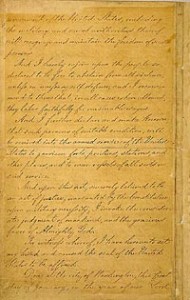 ernment of the United States, including the
military and naval authorities thereof,
will recognize and maintain the freedom of said
persons.
And I hereby enjoin upon the people so
declared to be free to abstain from all violence,
unless in necessary self-defence; and I recom-
mend to them that, in all cases when allowed,
they labor faithfully for reasonable wages.
And I further declare and make known
that such persons of suitable condition, will
be received into the armed service of the United
States to garrison forts, positions, stations, and
other places, and to man vessels of all sorts in said
service.
And upon this act, sincerely believed to be
an act of justice, warranted by the Constitution,
upon military necessity, I invoke the considerate
judgment of mankind, and the gracious
favor of Almighty God.
In witness whereof, I have hereunto set
my hand and caused the seal of the United
States to be affixed.
Done at the city of Washington, this first
day of January, in the year of our Lord